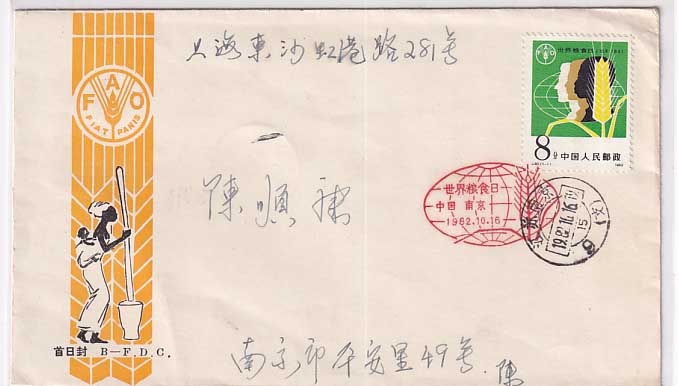 上海東沙虹港路281号
FAO
FIAT PANIS
世界粮食日
8分 中国人民邮政
1982
陳順
世界粮食日
中国 南京
1982.10.16
江苏南京
1982.10.16
15
6
首日封 B—F.D.C.
南京市平安里49号 陳